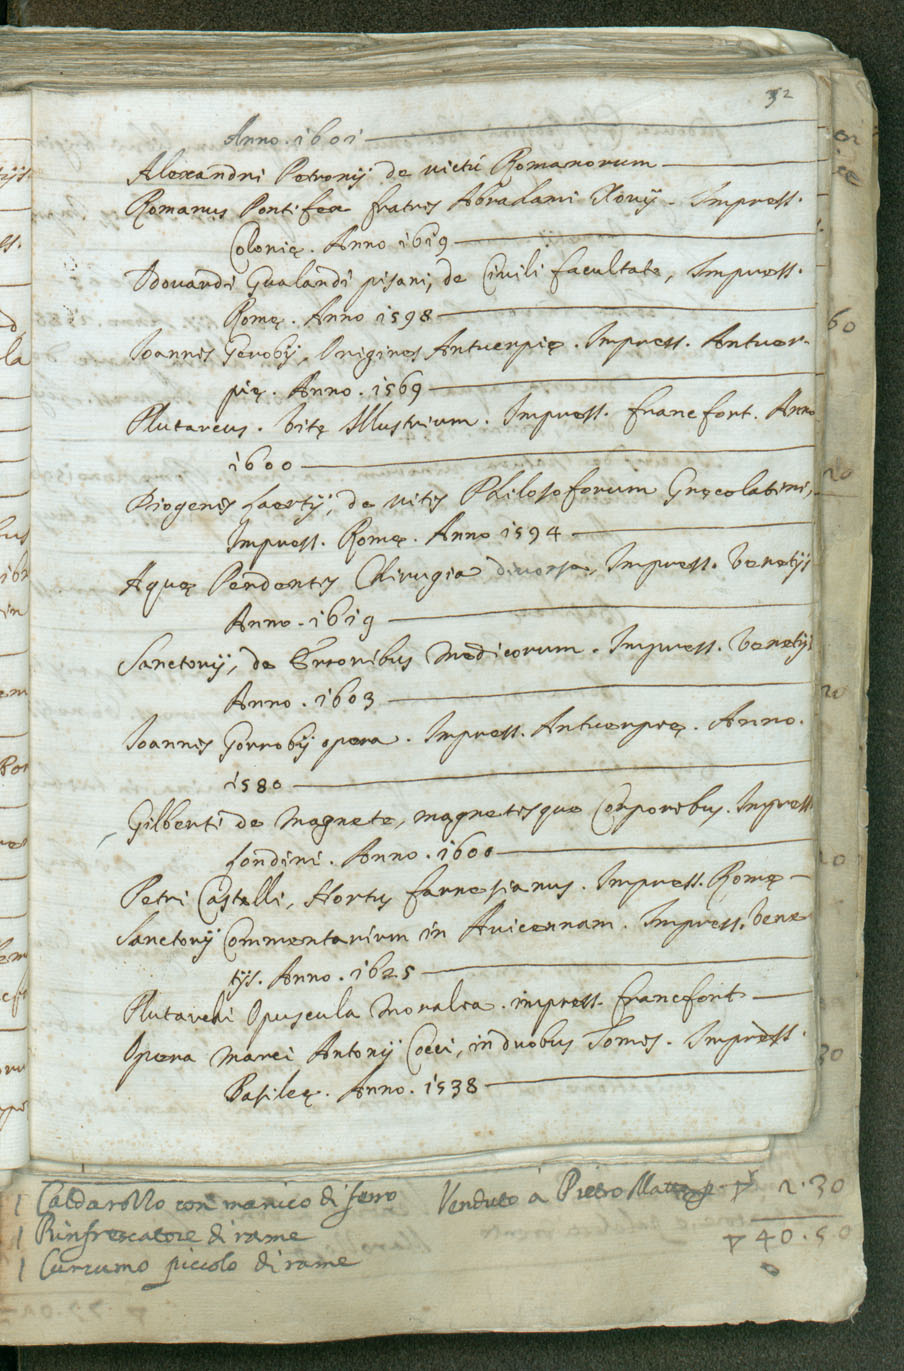 32
Anno. 1601
Alexandri Petronij de victú Romanorum
Romanus Pontifex fratris Abrahami Xouij. Impress.
Colonię. Anno 1619
Edouardi Gualandi pisani, de Ciuili facultate, Impress.
Romę. Anno 1598
Ioannis Goroby, Origines Antuerpię. Impress. Antuer-
pię. Anno. 1569
Plutarcus. Vitę Illustrium. Impress. francfort. Anno
1600
Diogenis Laertij, de vitis Philosoforum Gręcolatini,
Impress. Romę. Anno 1594
Aquę Pendentis Chirugia diuersa, Impress. Venetijs
Anno. 1619
Sanctorij, de Erroribus Medicorum. Impress. Venetijs
Anno. 1603
Ioannis Gorroby opera. Impress. Antuerpię. Anno.
1580
Gilberti de Magnete, magnetisque Corporibus. Impress
Londini. Anno. 1600
Petri Castelli, Hortus farnesianus. Impress. Romę
Sanctorij Commentarium in Auicennam. Impress. Vene
tijs. Anno. 1625
Plutarchi Opuscula Moralia. impress. francfort
Opera Marci Antonij Cocci, in duobus Tomis. Impress.
Basileę. Anno. 1538
60
20
20
30
1 Caldarollo con manico di ferro Venduto á Pietro 2.30
1 Rinfrescatore di rame 40.50
1 Cuccumo piccolo di rame